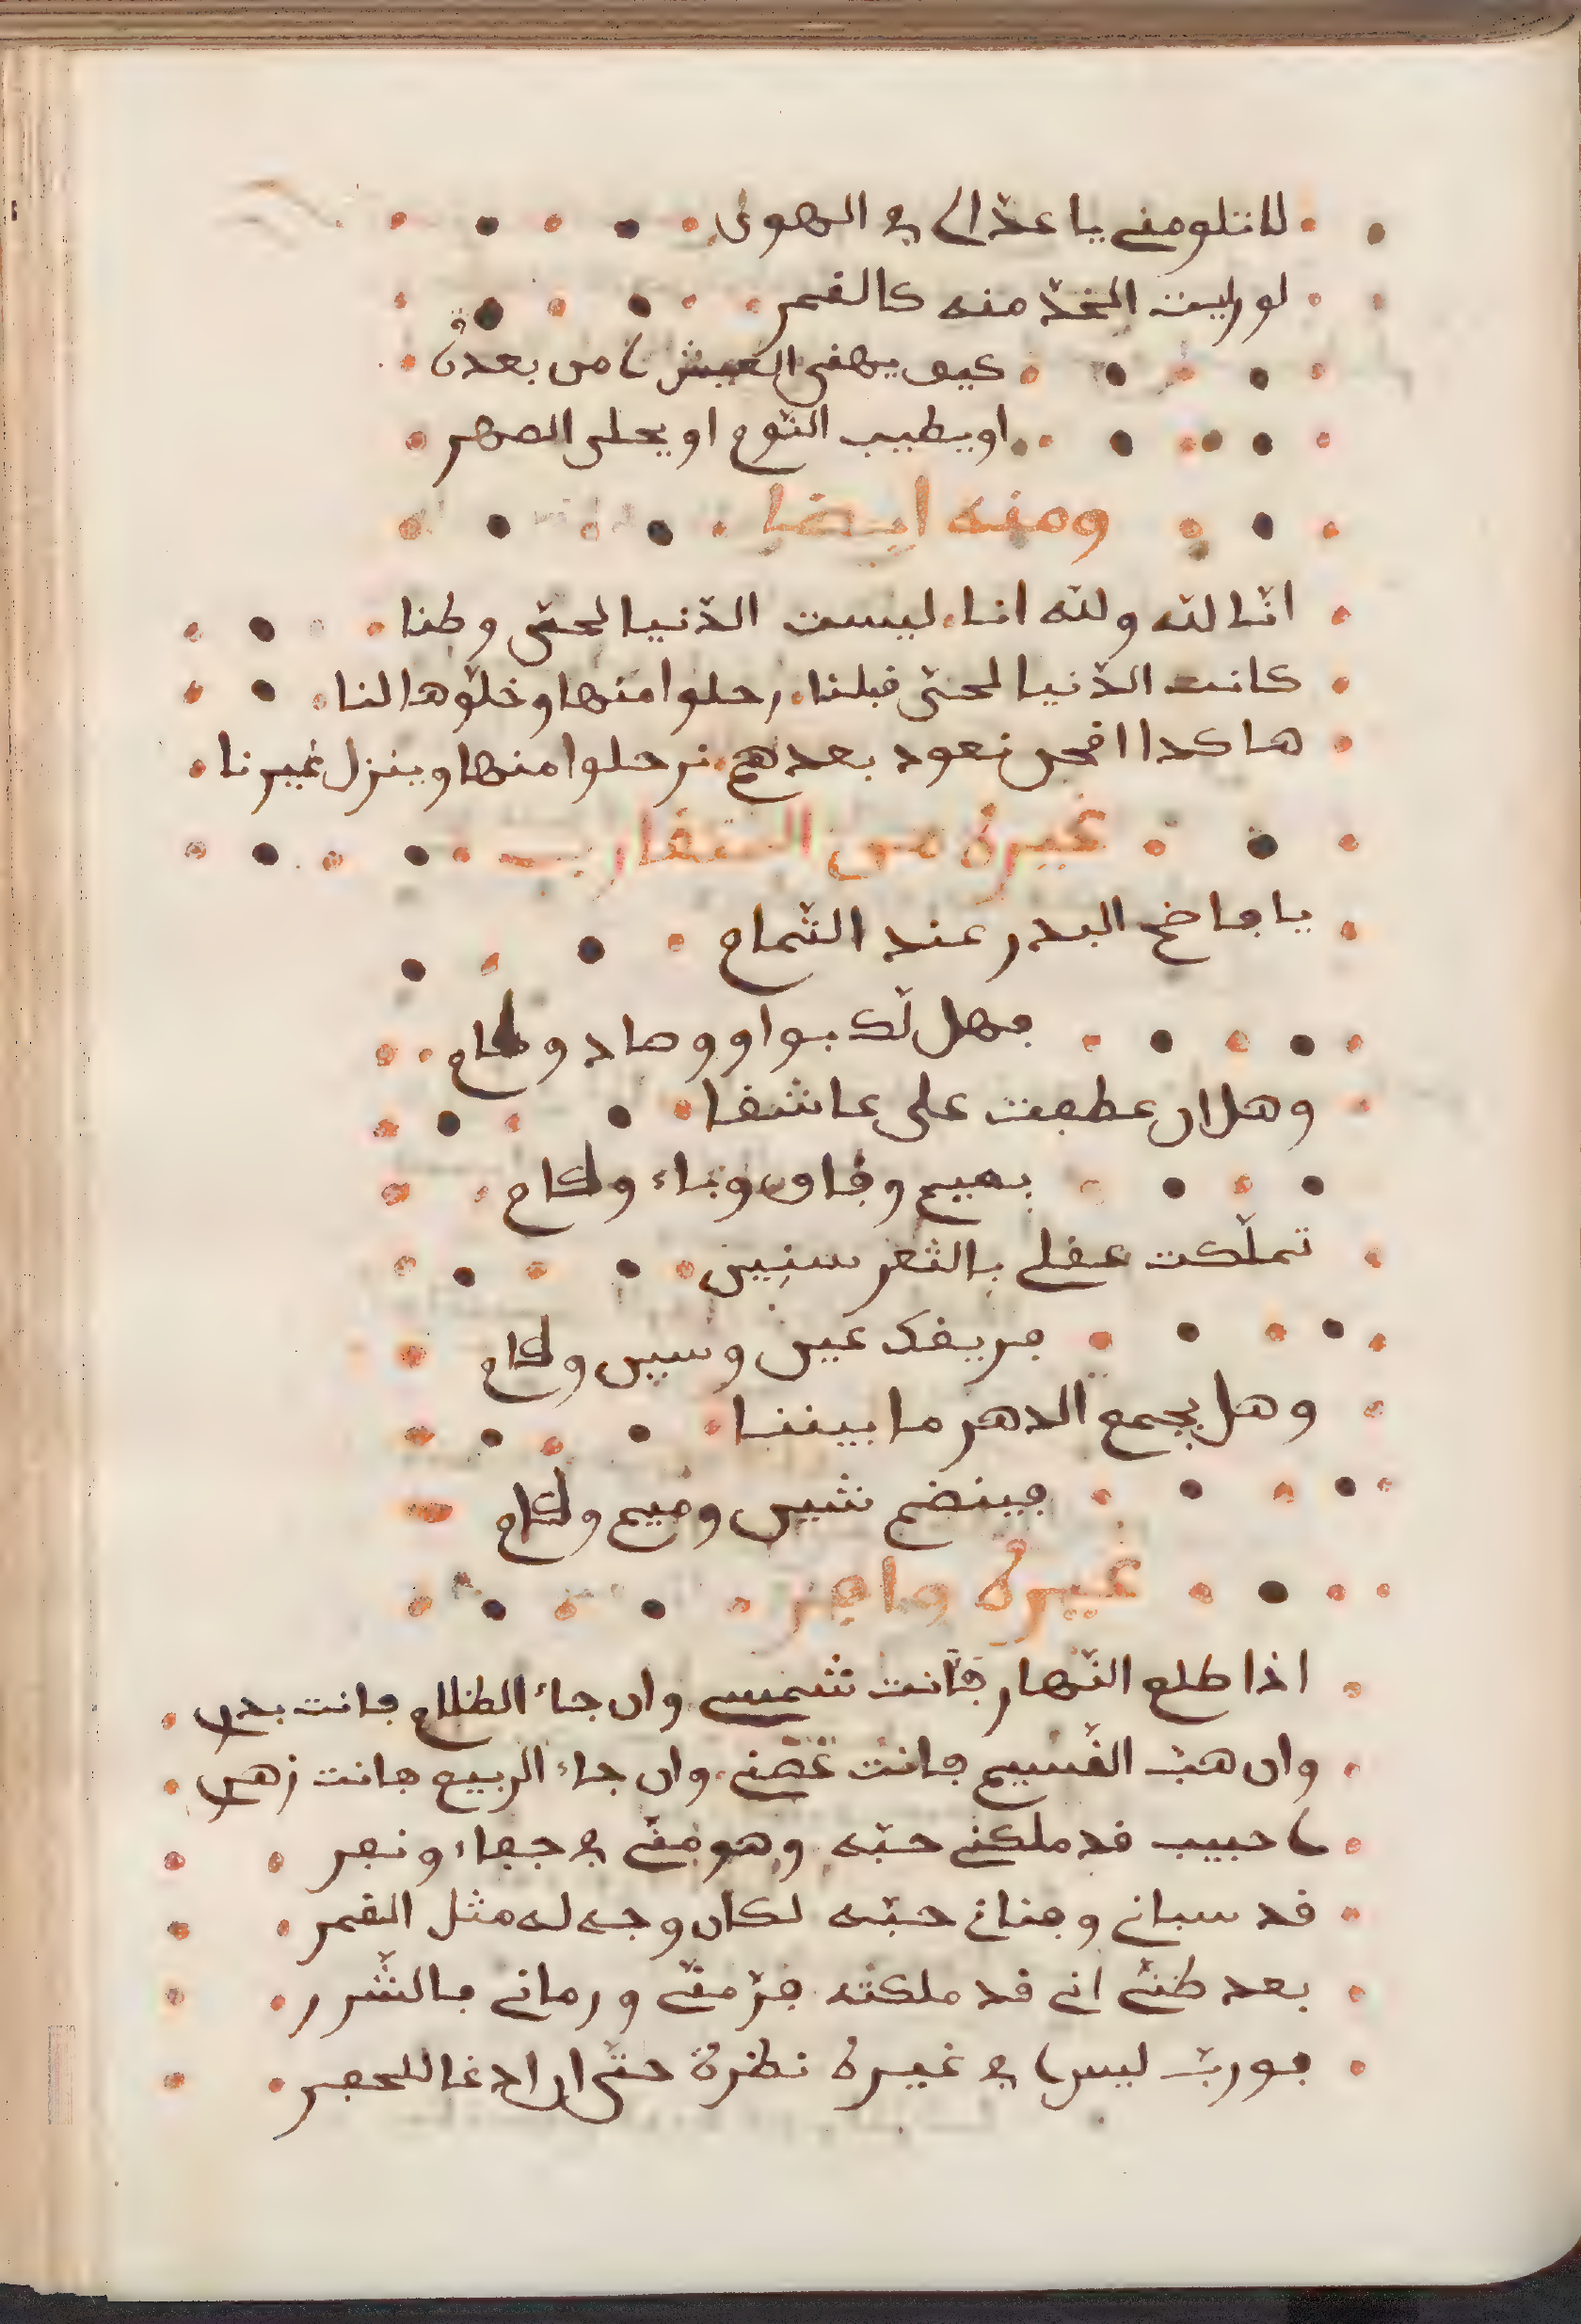 لا تلومني يا عذالي في الهوى
لو رايت الخدّ منه كالقمر
كيف يهنى العيش لي من بعده
او يطيب النّوم او يحلى الصهر
ومنه ايضا
انّا لله ولله انا ليست الدّنيا لحىّ وطنا
كانت الدّنيا لحىّ قبلنا رحلوا منها وخلّوها لنا
هاكدا انحن نعود بعدهم نرحلوا منها وينزل غيرنا
غيره من المتقارب
يا فاضح البدر عند التّمام
فهل لّك بواو وصاد ولام
وهل ان عطفت على عاشقا
بميم وقاف وباء ولام
تملّكت عقلي بالثغر سنين
فريقك عين وسين ولام
وهل يجمع الدهر ما بيننا
فينضم شين وميم ولام
غيره وافر
اذا طلع النّهار فأنت شمسي وان جاء الظلام فانت بدري
وان هبّ النّسيم فانت غصني وان جاء الربيع فانت زهري
لي حبيب قد ملكني حبّه وهو منّي في جفاء ونفر
قد سباني وفناني حبّه لكان وجه له مثل القمر
بعد ظنّي اني قد ملكته فرّ منّي ورماني بالشّرر
فوربّ ليس لي في غيره نظرة حتى ان ادعا للحفر